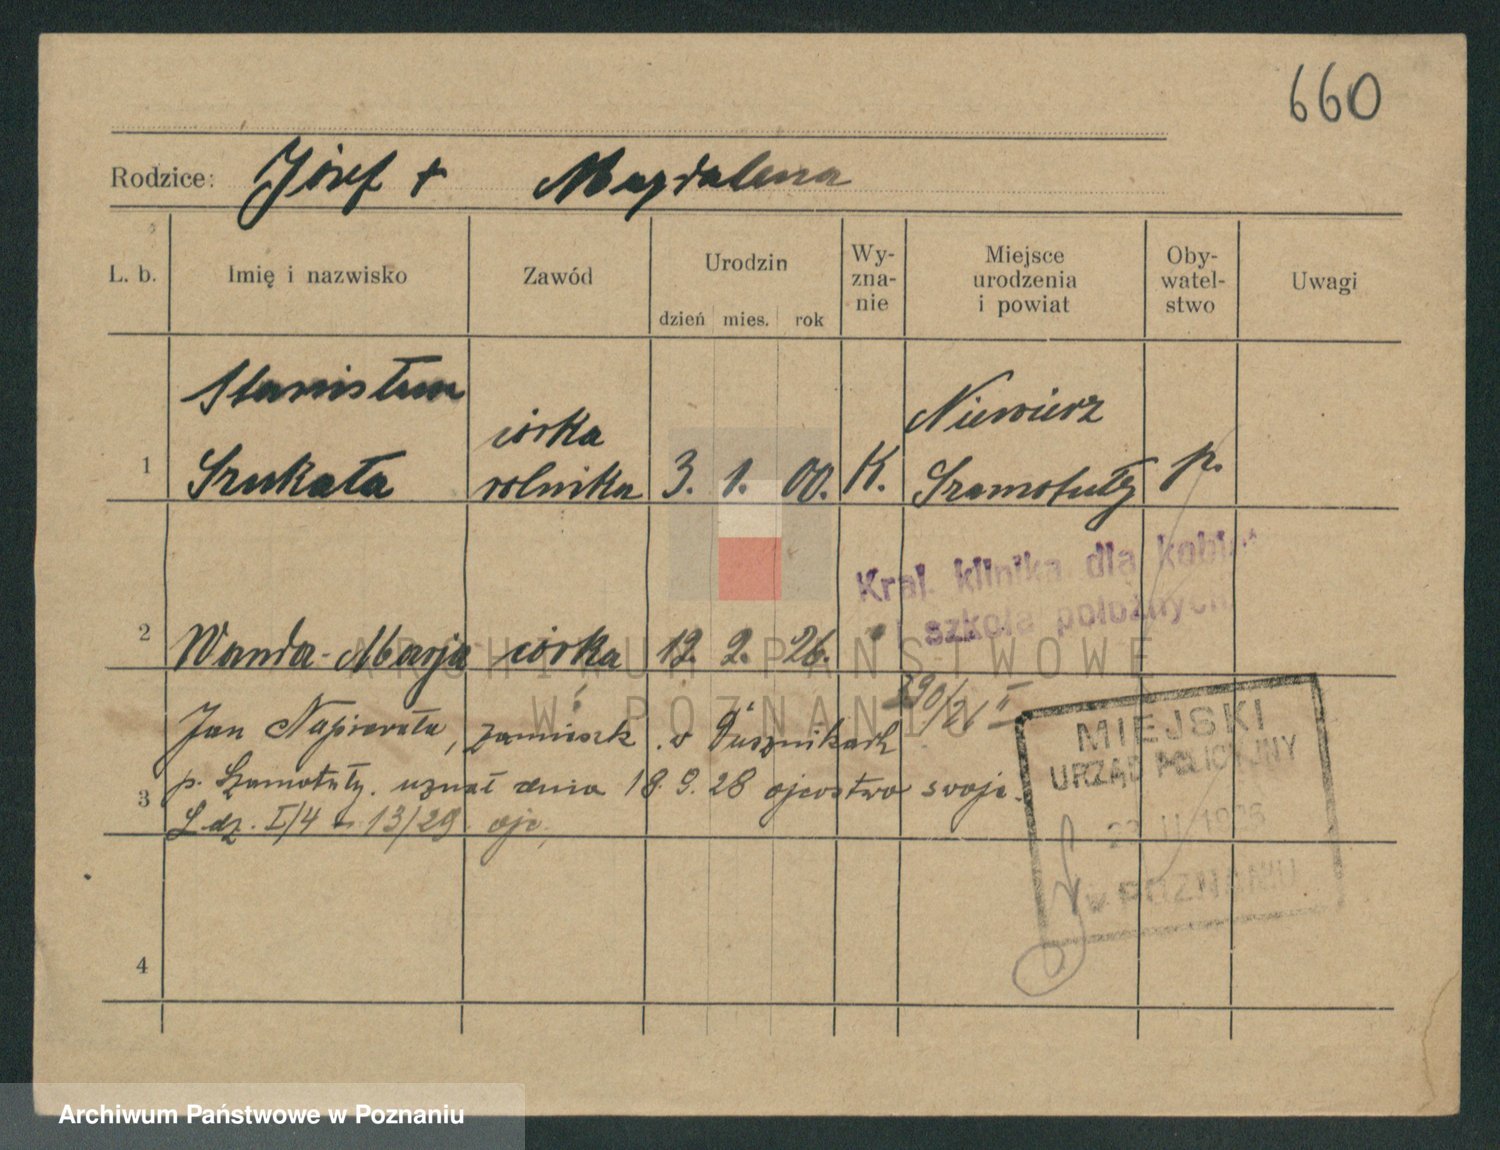 660
Rodzice: Józef + Magdalena
L. b. Imię i nazwisko Zawód Urodzin Wy-zna-nie Miejsce urodzenia i powiat Oby-watel-stwo Uwagi
dzień mies. rok
Stanisława córka Niewierz
1 Szukała rolnika 3. 1. 00. K. Szamotuły p.
Kral. klinika dla kobiet
i szkoła położnych
2 Wanda-Marja córka 12. 2. 26.
ARCHIWUM PAŃSTWOWE
W POZNANIU
390/26 II
Jan Napierała, zamieszk. w Dusznikach
p. Szamotuły. uznał dnia 18.9.28 ojcostwo swoje.
3
L.dz. I/4 - 13/29 ojc,
MIEJSKI
URZĄD POLICYJNY
23 II 1926
w POZNANIU
4
Archiwum Państwowe w Poznaniu